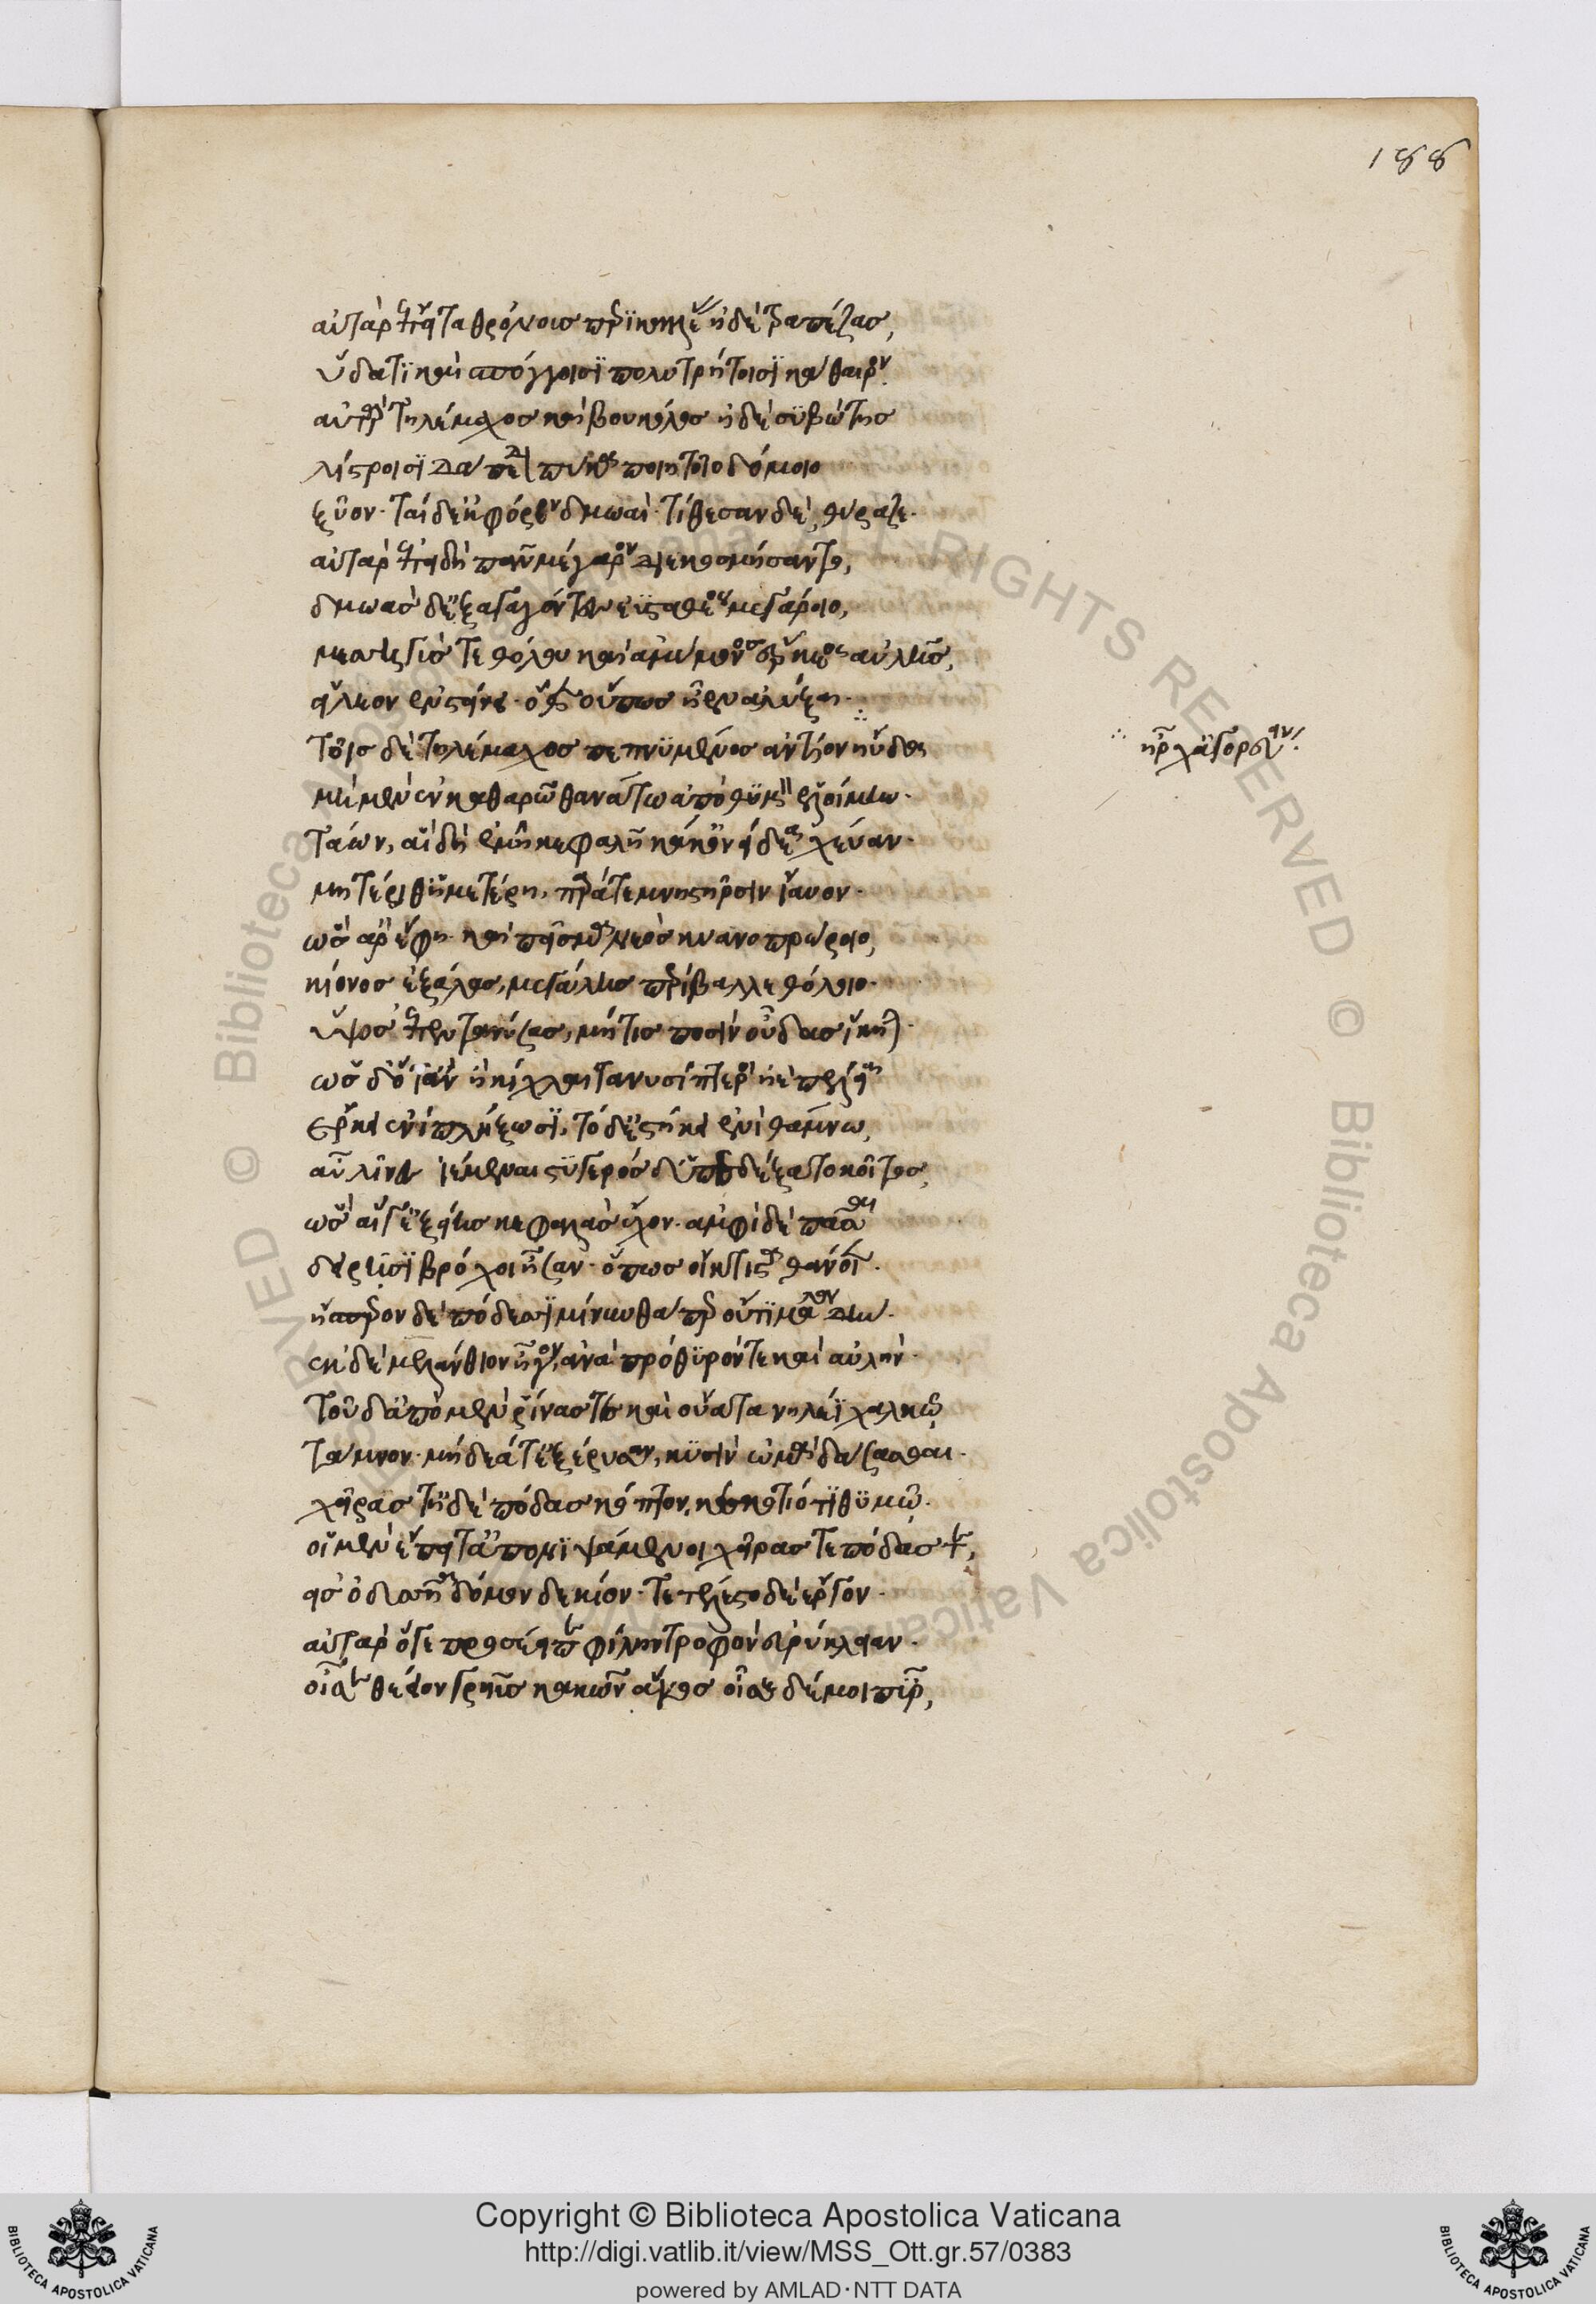 αὐτὰρ ἔπειτα θρόνους περὶ καλλέας ἠδὲ τραπέζας,
ὕδατϊ καὶ σπόγγοισϊ πολυτρήτοισϊ κάθαιρον.
αὐτὰρ τηλέμαχος καὶ βουκόλος ἠδὲ συβώτης
λίστροισϊ δάπεδον πύκα ποιητοῖο δόμοιο
ξῦον· ταὶ δ' ἐκφόρεον δμωαὶ· τίθεσαν δὲ θύραζε.
αὐτὰρ ἐπειδὴ πᾶν μέγαρον διεκοσμήσαντο,
δμωὰς δ' ἐξαγαγόντες ἐϋσταθέος μεγάροιο,
μεσσηγύς τε θόλου καὶ ἀμύμονος ἕρκεος αὐλῆς,
εἴλεον ἐν στείνει· ὅθεν οὔπως ἦεν ἀλύξαι.
τοῖς δὲ τηλέμαχος πεπνυμένος ἀντίον ηὔδα ∴
∴ ἦρχ' ἀγορεύειν:
μὴ μὲν οὖν καθαρῶ θανάτω ἀπὸ θυμὸν ἑλοίμην.
τάων, αἳ δὴ ἐμῇ κεφαλῇ κατ' ὀνείδεα χεῦαν.
μητέρι θ' ἡμετέρῃ, παρά τε μνηστῆρσιν ἴαυον.
ὣς ἄρ' ἔφη· καὶ πεῖσμα νεὸς κυανοπρώροιο,
κίονος ἐξάψας, μεγάλης περίβαλλε θόλοιο.
ὑψόσ' ἐπεντανύσας, μήτις ποσὶν οὖδας ἵκηται.
ὡς δ' ὅτ' ἂν ἢ κίχλαι τανυσίπτεροι ἠὲ πέλειαι
ἕρκει ἐνιπλήξωσϊ, τό θ' ἑστήκει ἐνὶ θάμνω,
αὖλιν ἐσϊέμεναι στυγερὸς δ' ὑπεδέξατο κοῖτος,
ὣς αἵγ' ἑξείης κεφαλὰς ἔχον· ἀμφὶ δὲ πάσαις
δειρῆσϊ βρόχοι ἦσαν· ὅπως οἴκτιστα θάνοιεν.
ἤσπαιρον δὲ πόδεσσϊ μίνυνθα περ οὔτι μάλα δήν.
ἐκ δὲ μελάνθιον ἦγον, ἀνὰ πρόθυρόν τε καὶ αὐλήν.
τοῦ δ' ἀπὸ μὲν ῥῖνάς τε καὶ οὔατα νηλέϊ χαλκῶ
τάμνον· μήδεά τ' ἐξέρυσαν, κυσὶν ὠμὰ δάσασθαι.
χεῖράς τ' ἠδὲ πόδας κόπτον, κεκοτηότϊ θυμῶ.
οἱ μὲν ἔπειτ' ἀπονιψάμενοι χεῖράς τε πόδας τε,
εἰς ὀδυσῆα δόμον δὲ κίον· τετέλεστο δὲ ἔργον.
αὐτὰρ ὅγε προσέειπε φίλην τροφὸν εὐρύκλειαν.
οἶσε θέειον γρηῢς κακῶν ἄκος οἶσε δέ μοι πῦρ,